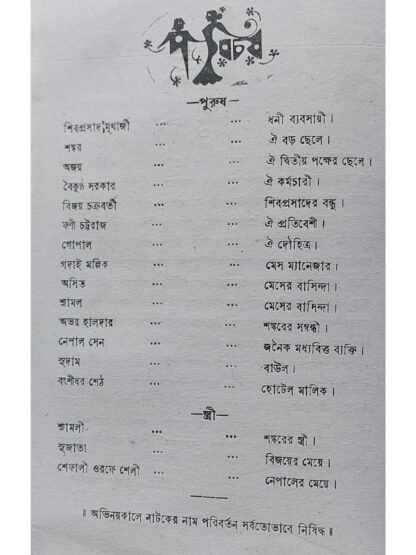 পরিচয়
—পুরুষ—
শিবপ্রসাদ মুখার্জী ... ... ধনী ব্যবসায়ী।
শঙ্কর ... ... ঐ বড় ছেলে।
অজয় ... ... ঐ দ্বিতীয় পক্ষের ছেলে।
বৈকুণ্ঠ সরকার ... ... ঐ কর্মচারী।
বিজয় চক্রবর্তী ... ... শিবপ্রসাদের বন্ধু।
ফণী চট্টরাজ ... ... ঐ প্রতিবেশী।
গোপাল ... ... ঐ দৌহিত্র।
গদাই মল্লিক ... ... মেস ম্যানেজার।
অসিত ... ... মেসের বাসিন্দা।
শ্যামল ... ... মেসের বাসিন্দা।
অভয় হালদার ... ... শঙ্করের সম্বন্ধী।
নেপাল সেন ... ... জনৈক মধ্যবিত্ত ব্যক্তি।
সুদাম ... ... বাউল।
বংশীধর শেঠ ... ... হোটেল মালিক।
—স্ত্রী—
শ্যামলী ... ... শঙ্করের স্ত্রী।
সুজাতা ... ... বিজয়ের মেয়ে।
শেফালী ওরফে শেলী ... ... নেপালের মেয়ে।
॥ অভিনয়কালে নাটকের নাম পরিবর্তন সর্বতোভাবে নিষিদ্ধ ॥